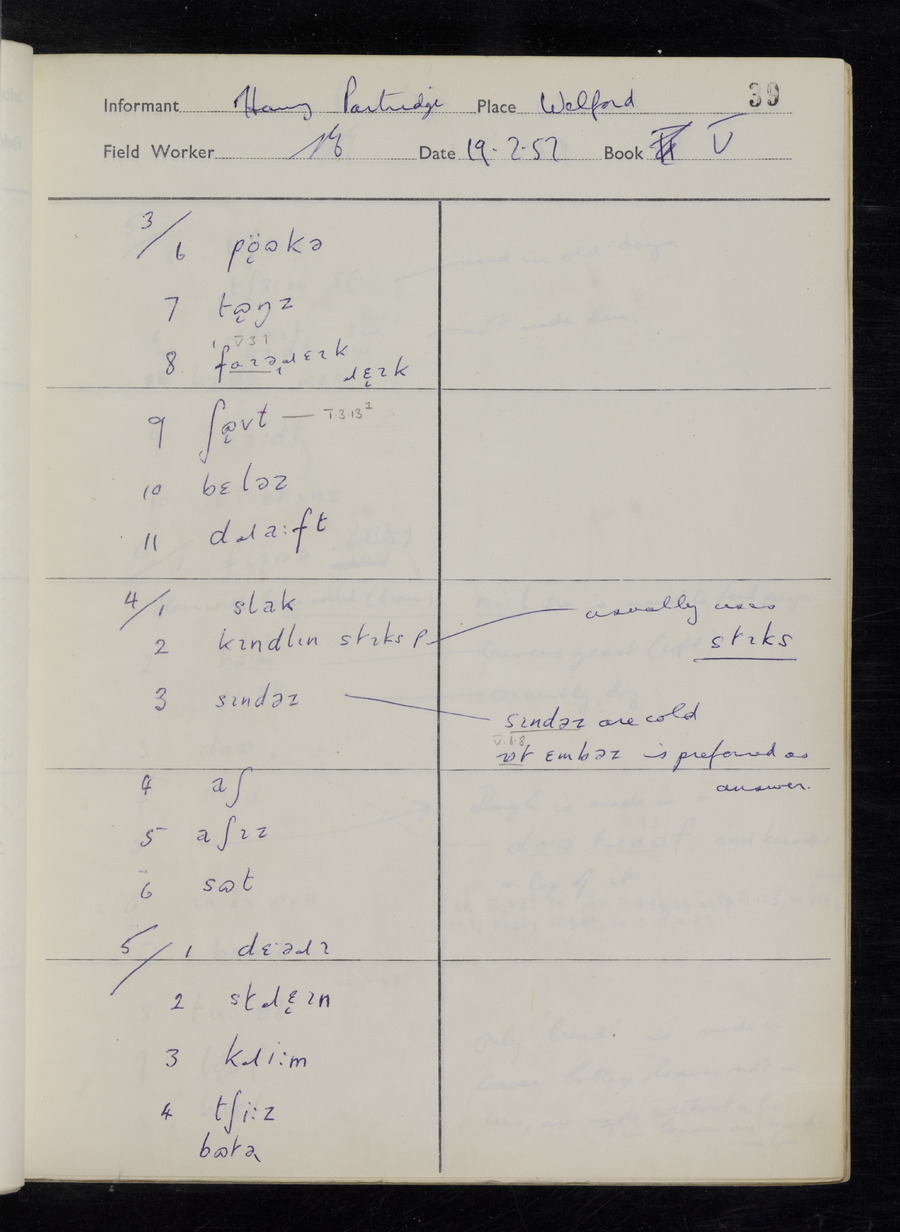 39
Informant Harry Partridge Place Welford
Field Worker Date 19.2.57 Book V
3/6 pö̞ɷkə
7 tɷ̞ŋz
V 3 1
8 ˈfɑɪəˌɹɛɪk
ɹɛ̞ɪk
9 ʃɷ̞vt — I.3.13²
10 bɛləz
11 dɹaːft
4/1 slak
2 kɪndlɪn stɪks p usually uses
stɪks
3 sɪndəz
sɪndəz are cold
V.6.8
ɒt ɛmbəz is preferred as
answer.
4 aʃ
5 aʃɪz
6 sɷt
5/1 dɛˑəɹɪ
2 stɹɛ̞ɪn
3 kɹiːm
4 tʃiːz
bɷtə